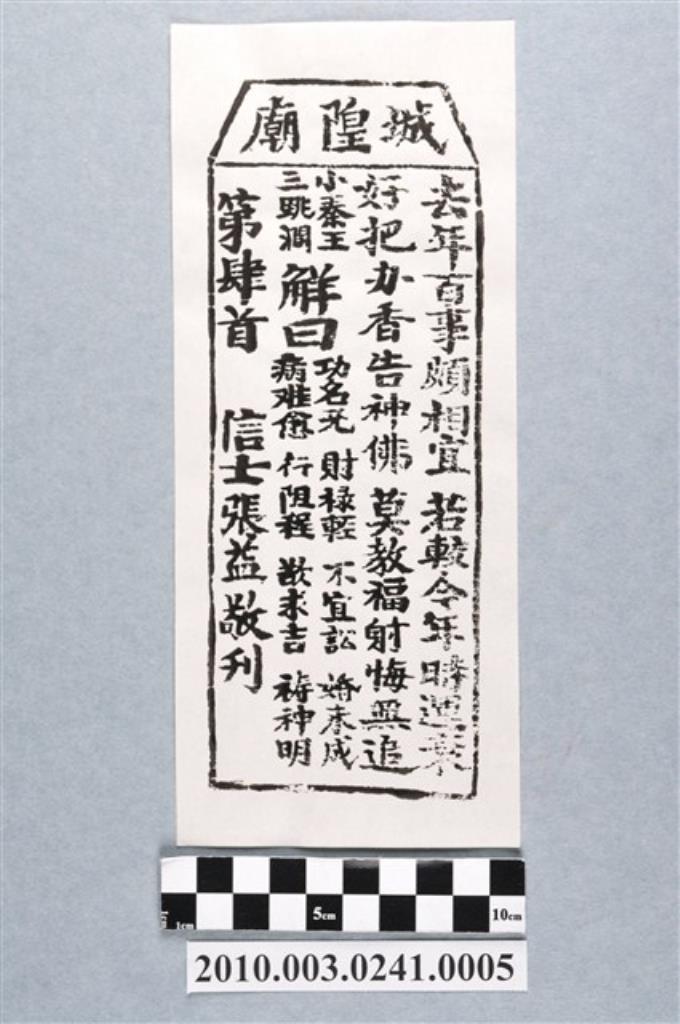 城隍廟
去年百事頗相宜 若較今年時運衰
好把办香告神佛 莫教福財悔無追
小秦王
三跳澗
解曰
功名无 財祿輕 不宜訟 婚未成
病难愈 行阻程 欲求吉 禱神明
第肆首 信士張益敬刋
5cm
1cm
10cm
2010.003.0241.0005